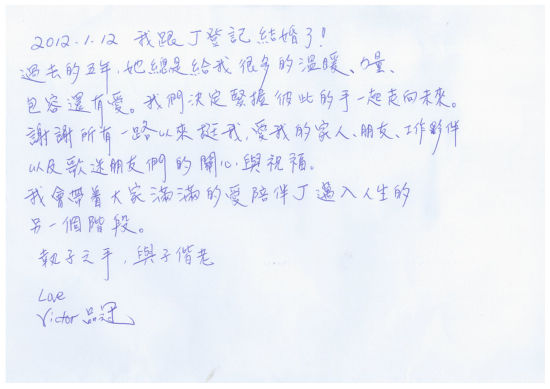 2012.1.12 我跟丁登記結婚了!
過去的五年,她總是給我很多的溫暖、力量、
包容還有愛。我們決定緊握彼此的手一起走向未來。
謝謝所有一路以來挺我,愛我的家人、朋友、工作夥伴
以及歌迷朋友們的關心與祝福。
我會帶着大家滿滿的愛陪伴丁邁入人生的
另一個階段。
執子之手,與子偕老
Love
Victor 品冠